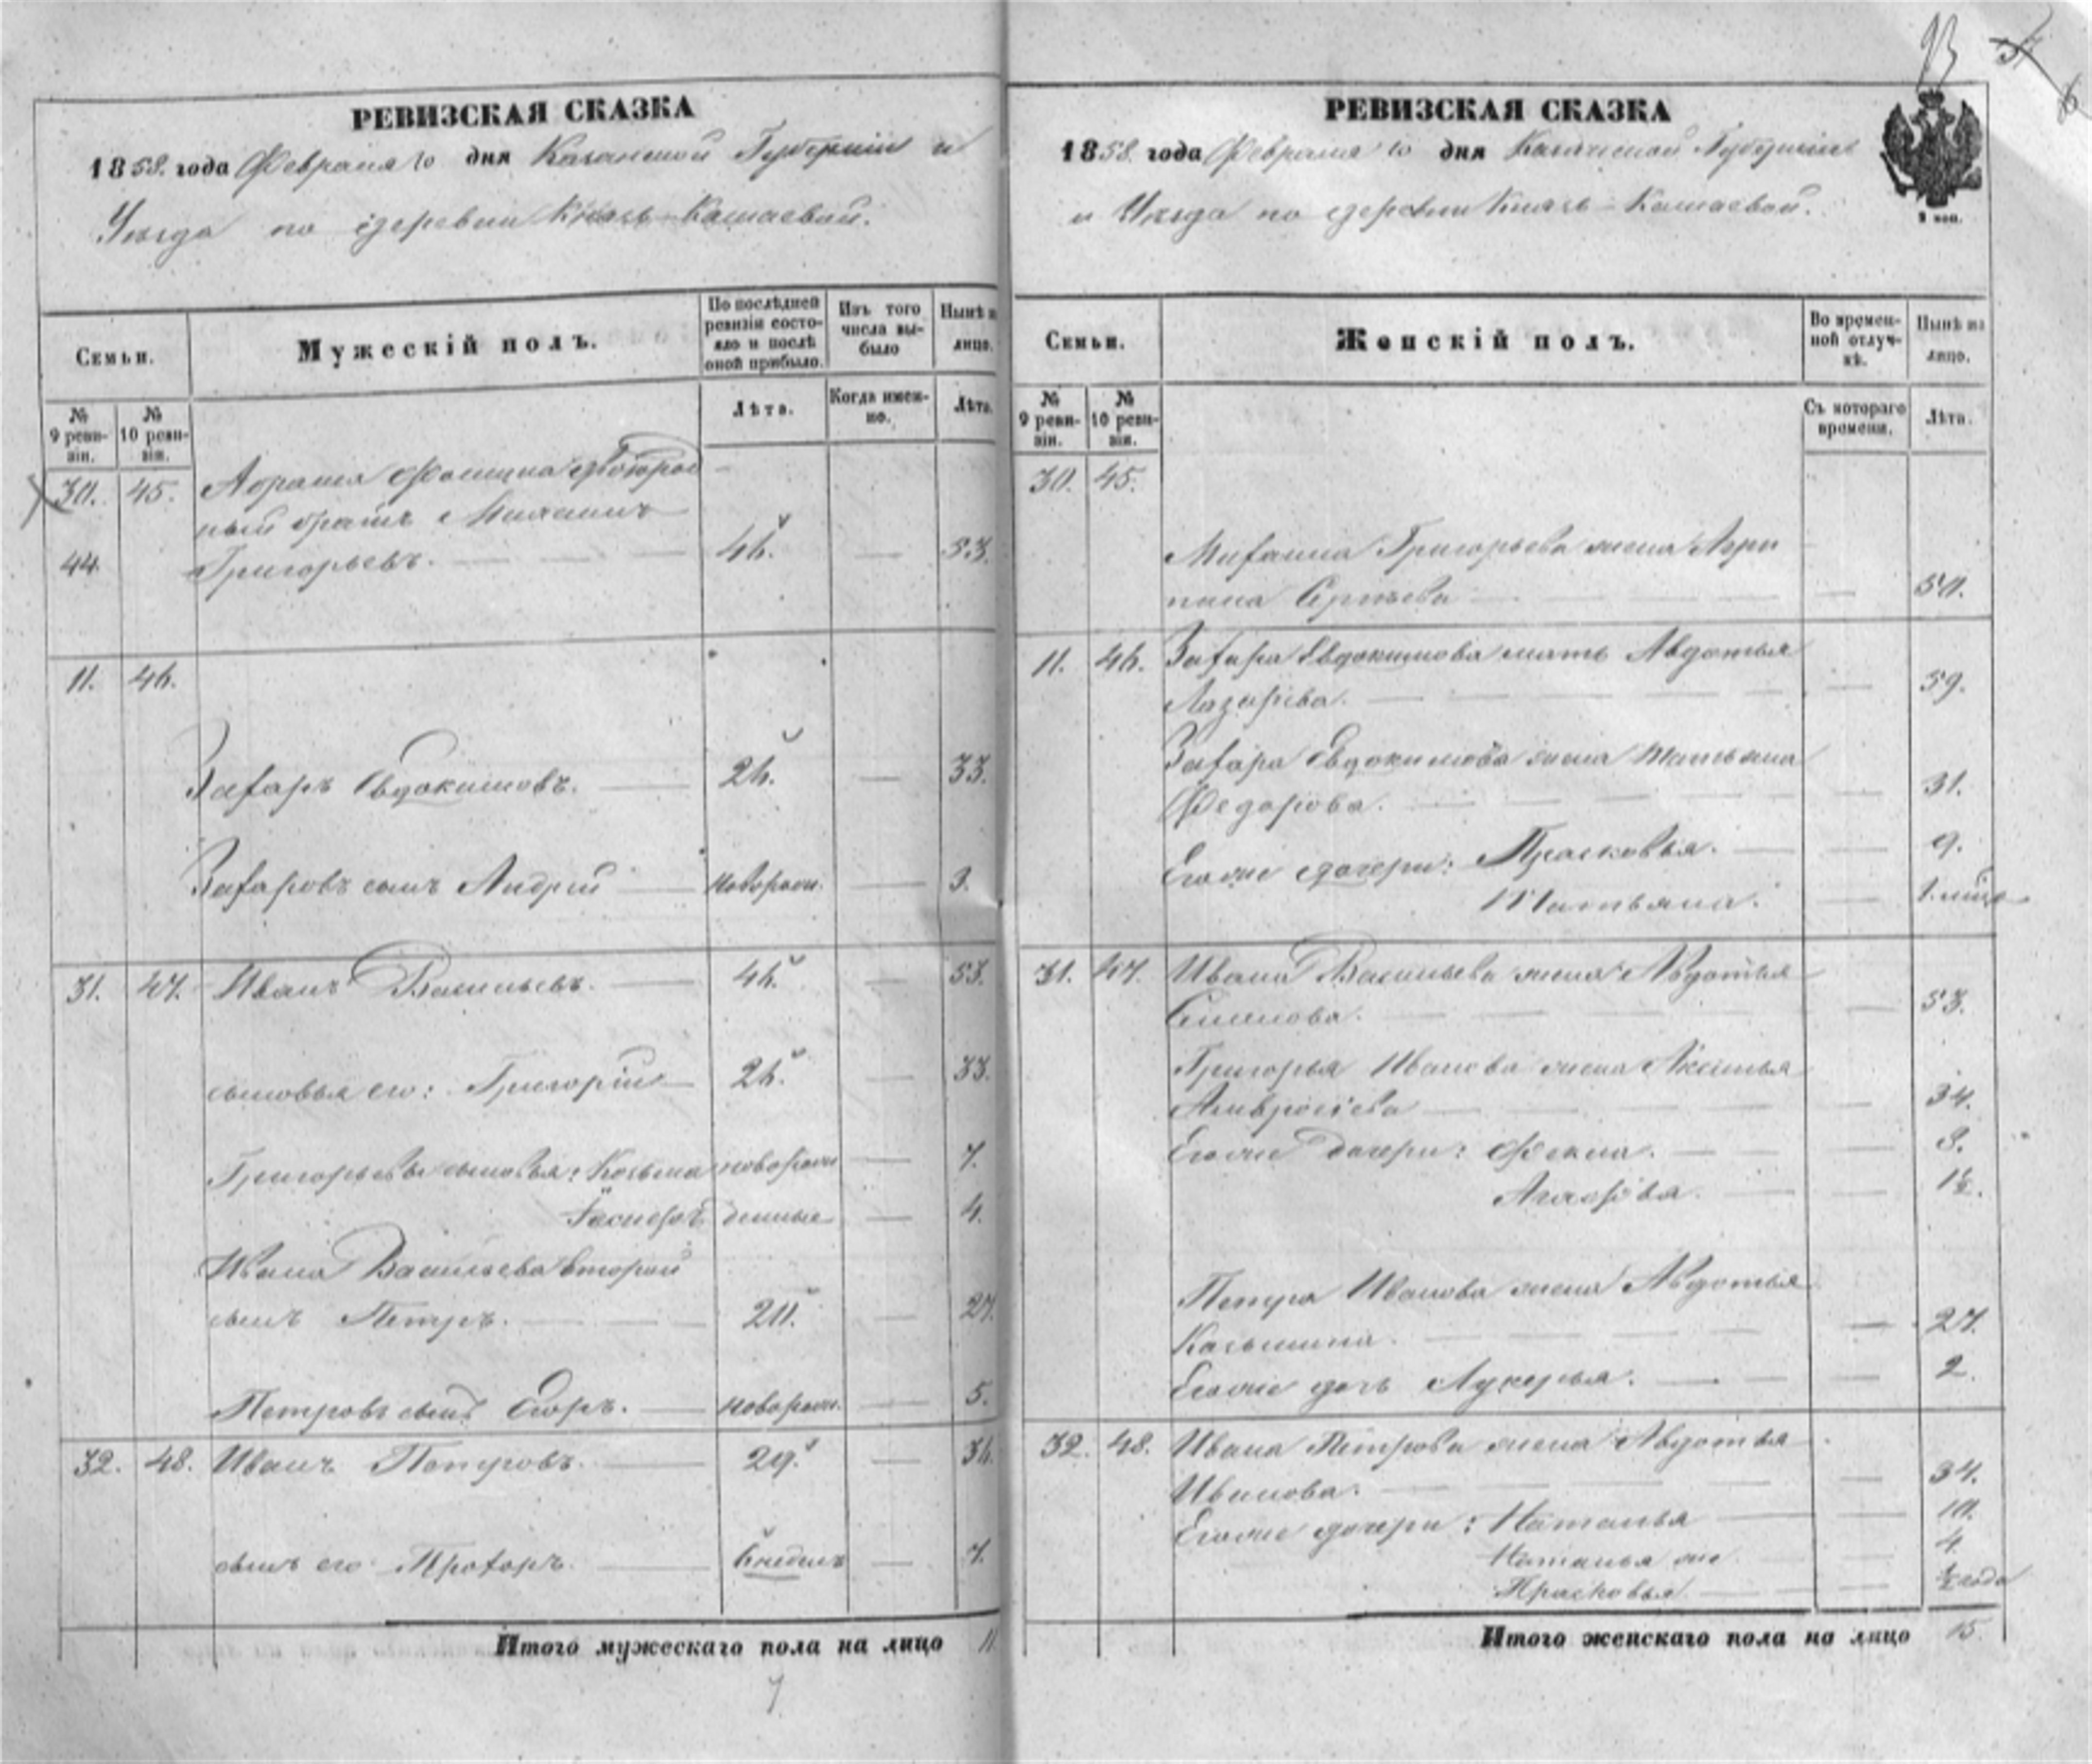 РЕВИЗСКАЯ СКАЗКА
1858. года Февраля 10 дня Казанской Губерніи и
Уѣзда по деревни Князь-Камаевой.
Семьи.
Мужескій полъ.
По послѣдней ревизіи состояло и послѣ оной прибыло.
Изъ того числа выбыло
Нынѣ на лицо.
№ 9 ревизіи.
№ 10 ревизіи.
Лѣта.
Когда именно.
Лѣта.
30. 45. двоюрод
ный братъ Михаилъ
44 Григорьевъ. 46. 53.
11. 46.
Захаръ Евдокимовъ. 26. 33.
Захаровъ сынъ Андрей новорожд. 3.
31. 47. Иванъ Васильевъ. 46. 53.
сыновья его: Григорій 26. 33.
Григорьевы сыновья: Козьма новорож 7.
денные 4.
Ивана Васильева второй
сынъ Петръ. 20. 27.
Петровъ сынъ Егоръ. новорожд. 5.
32. 48. Иванъ Петровъ. 29. 36.
сынъ его Прохоръ. 6 недель 7.
Итого мужескаго пола на лицо 11
7
93
РЕВИЗСКАЯ СКАЗКА
1858. года Февраля 10 дня Казанской Губерніи
и Уѣзда по деревни Князь-Камаевой.
Семьи.
Женскій полъ.
Во временной отлучкѣ.
Нынѣ на лицо.
№ 9 ревизіи.
№ 10 ревизіи.
Съ котораго времени.
Лѣта.
30. 45.
Михаила Григорьева жена Агри
пина Сергѣева 50.
11. 46. Захара Евдокимова мать Авдотья
Лазарева. 59.
Захара Евдокимова жена Татьяна
Федорова. 31.
Его же дочери: Прасковья. 9.
Татьяна.
31. 47. Ивана Васильева жена Авдотья
Семенова. 53.
Григорья Иванова жена
Амвросіева 34.
Его же дочери: Фекла. 8.
1½.
Петра Иванова жена Авдотья
Козьмина. 27.
Его же дочь Лукерья. 2.
32. 48. Ивана Петрова жена Авдотья
Иванова. 34.
Его же дочери: Наталья 10.
Наталья же 4
Прасковья ½ года
Итого женскаго пола на лицо 15.